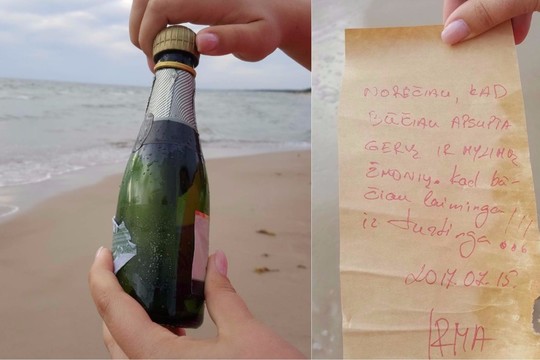 NORĖČIAU, KAD
BŪČIAU APSUPTA
GERŲ IR MYLIMŲ
ŽMONIŲ. kad bū-
čiau laiminga!!!
ir turtinga...
2017.07.15.
IRMA